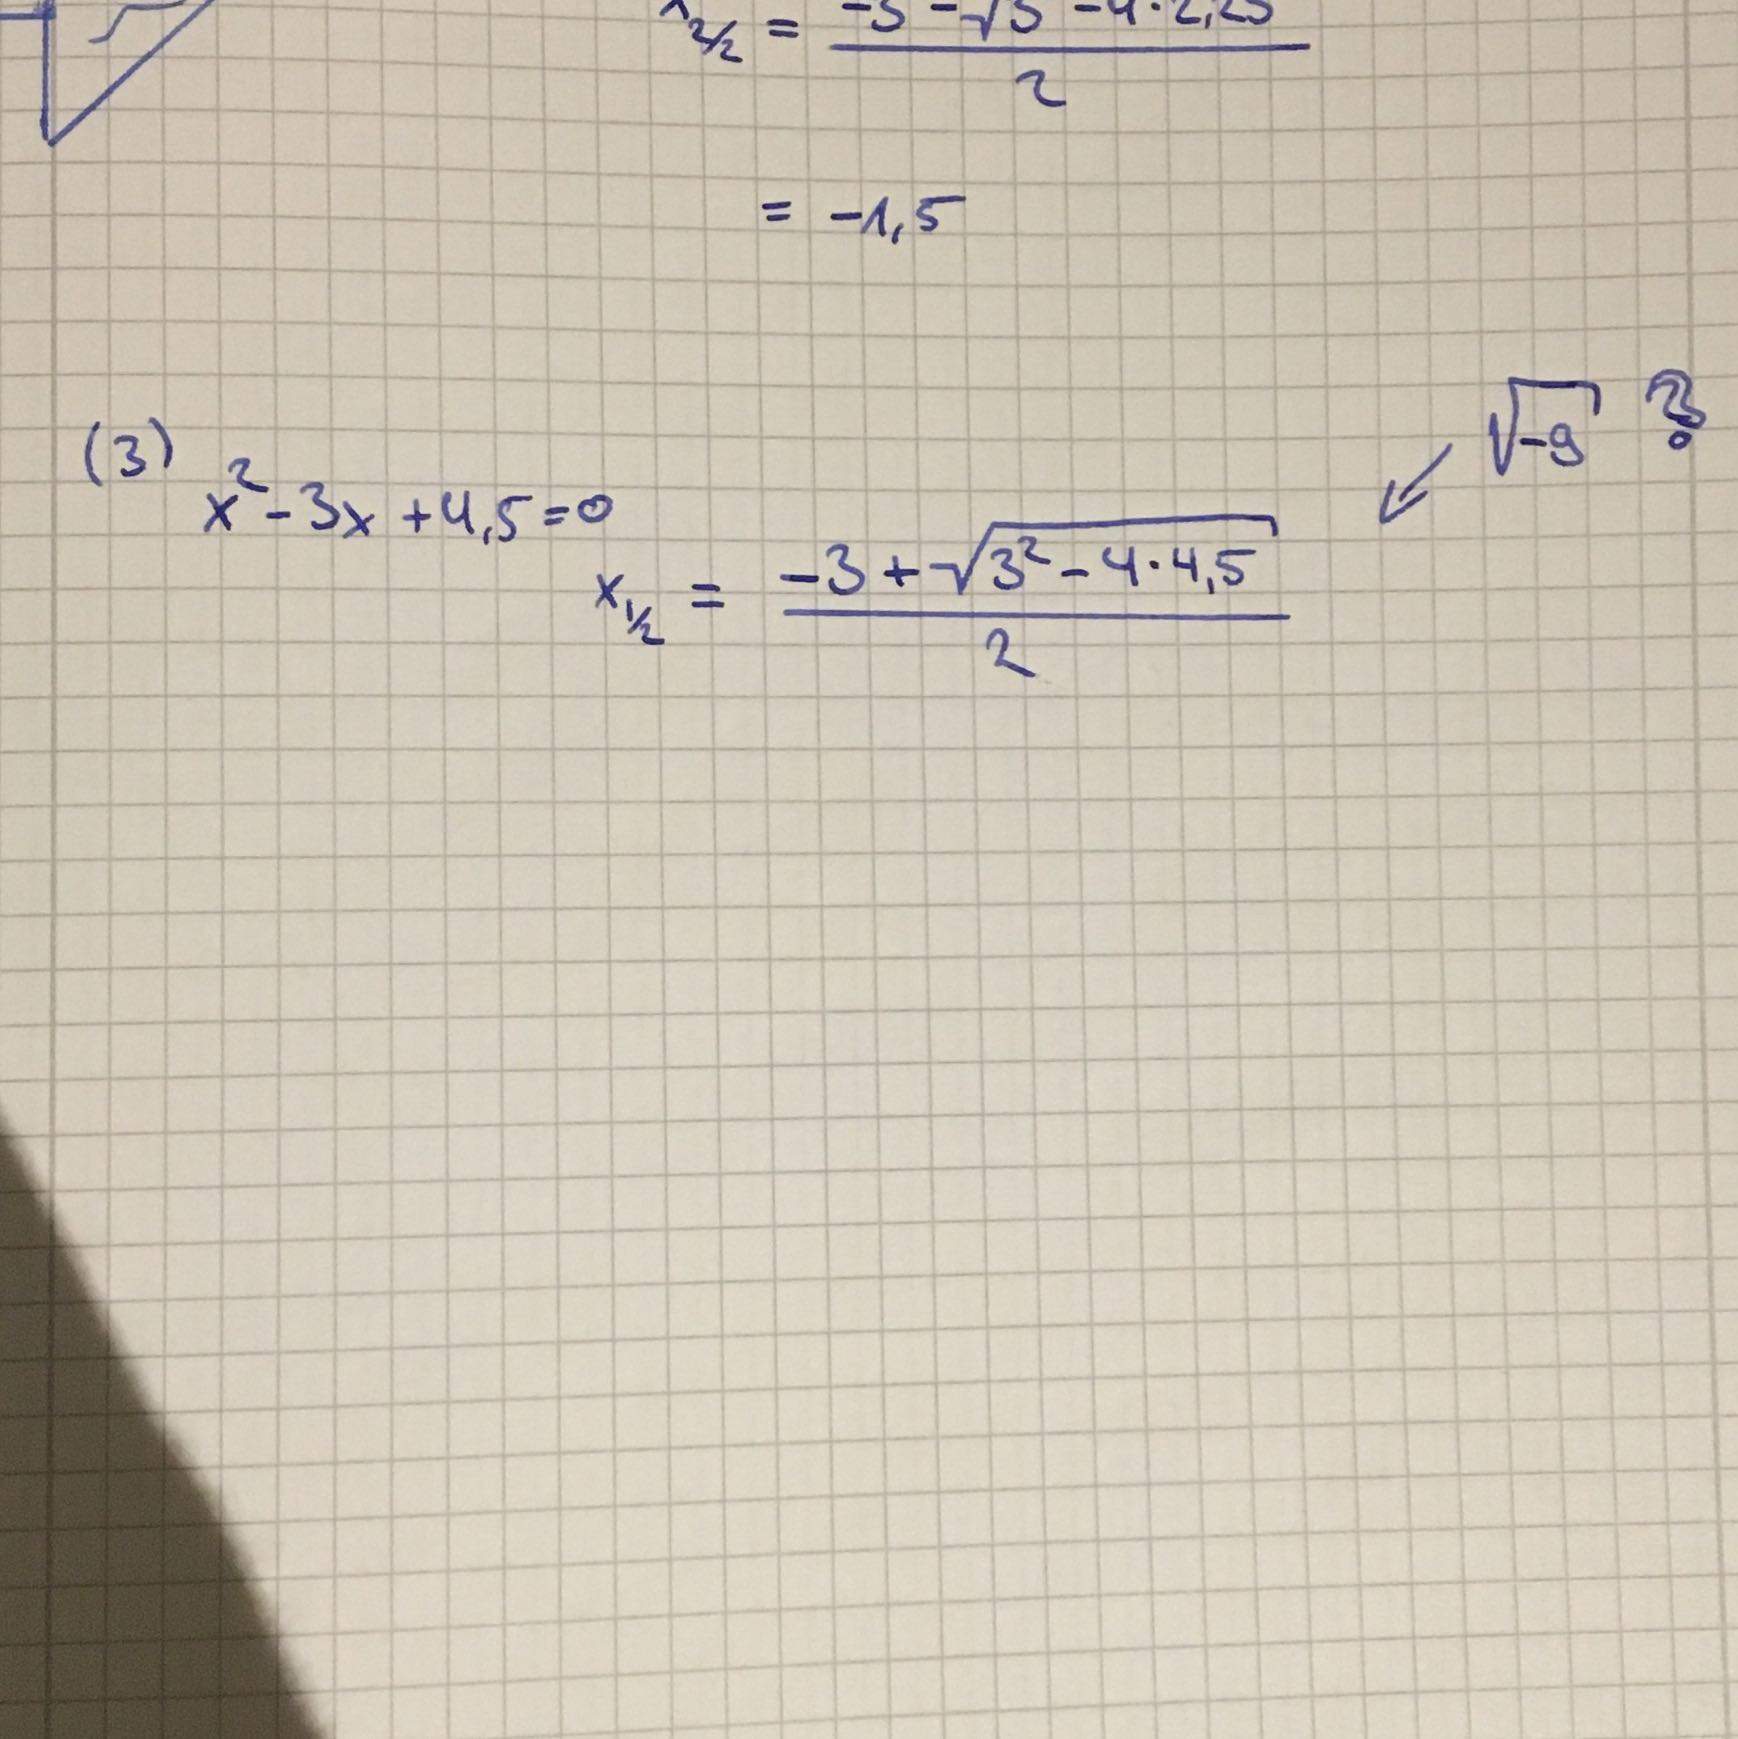 x_{2/2} = \frac{-3 - \sqrt{3 - 4 \cdot 2,25}}{2}
= -1,5
√-9 ?
(3)
x² - 3x + 4,5 = 0
x_{1/2} = \frac{-3 + \sqrt{3² - 4 · 4,5}}{2}